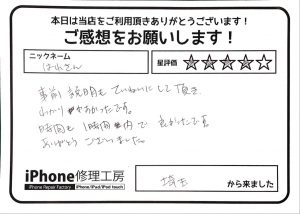 本日は当店をご利用頂きありがとうございます!
ご感想をお願いします!
ニックネーム
はれさん
星評価
★★★★☆
事前説明もていねいにして頂き
わかりやすかったです。
時間も1時間以内で良かったです
ありがとうございました
iPhone修理工房
iPhone Repair Factory
iPhone/iPad/iPod touch
埼玉
から来ました